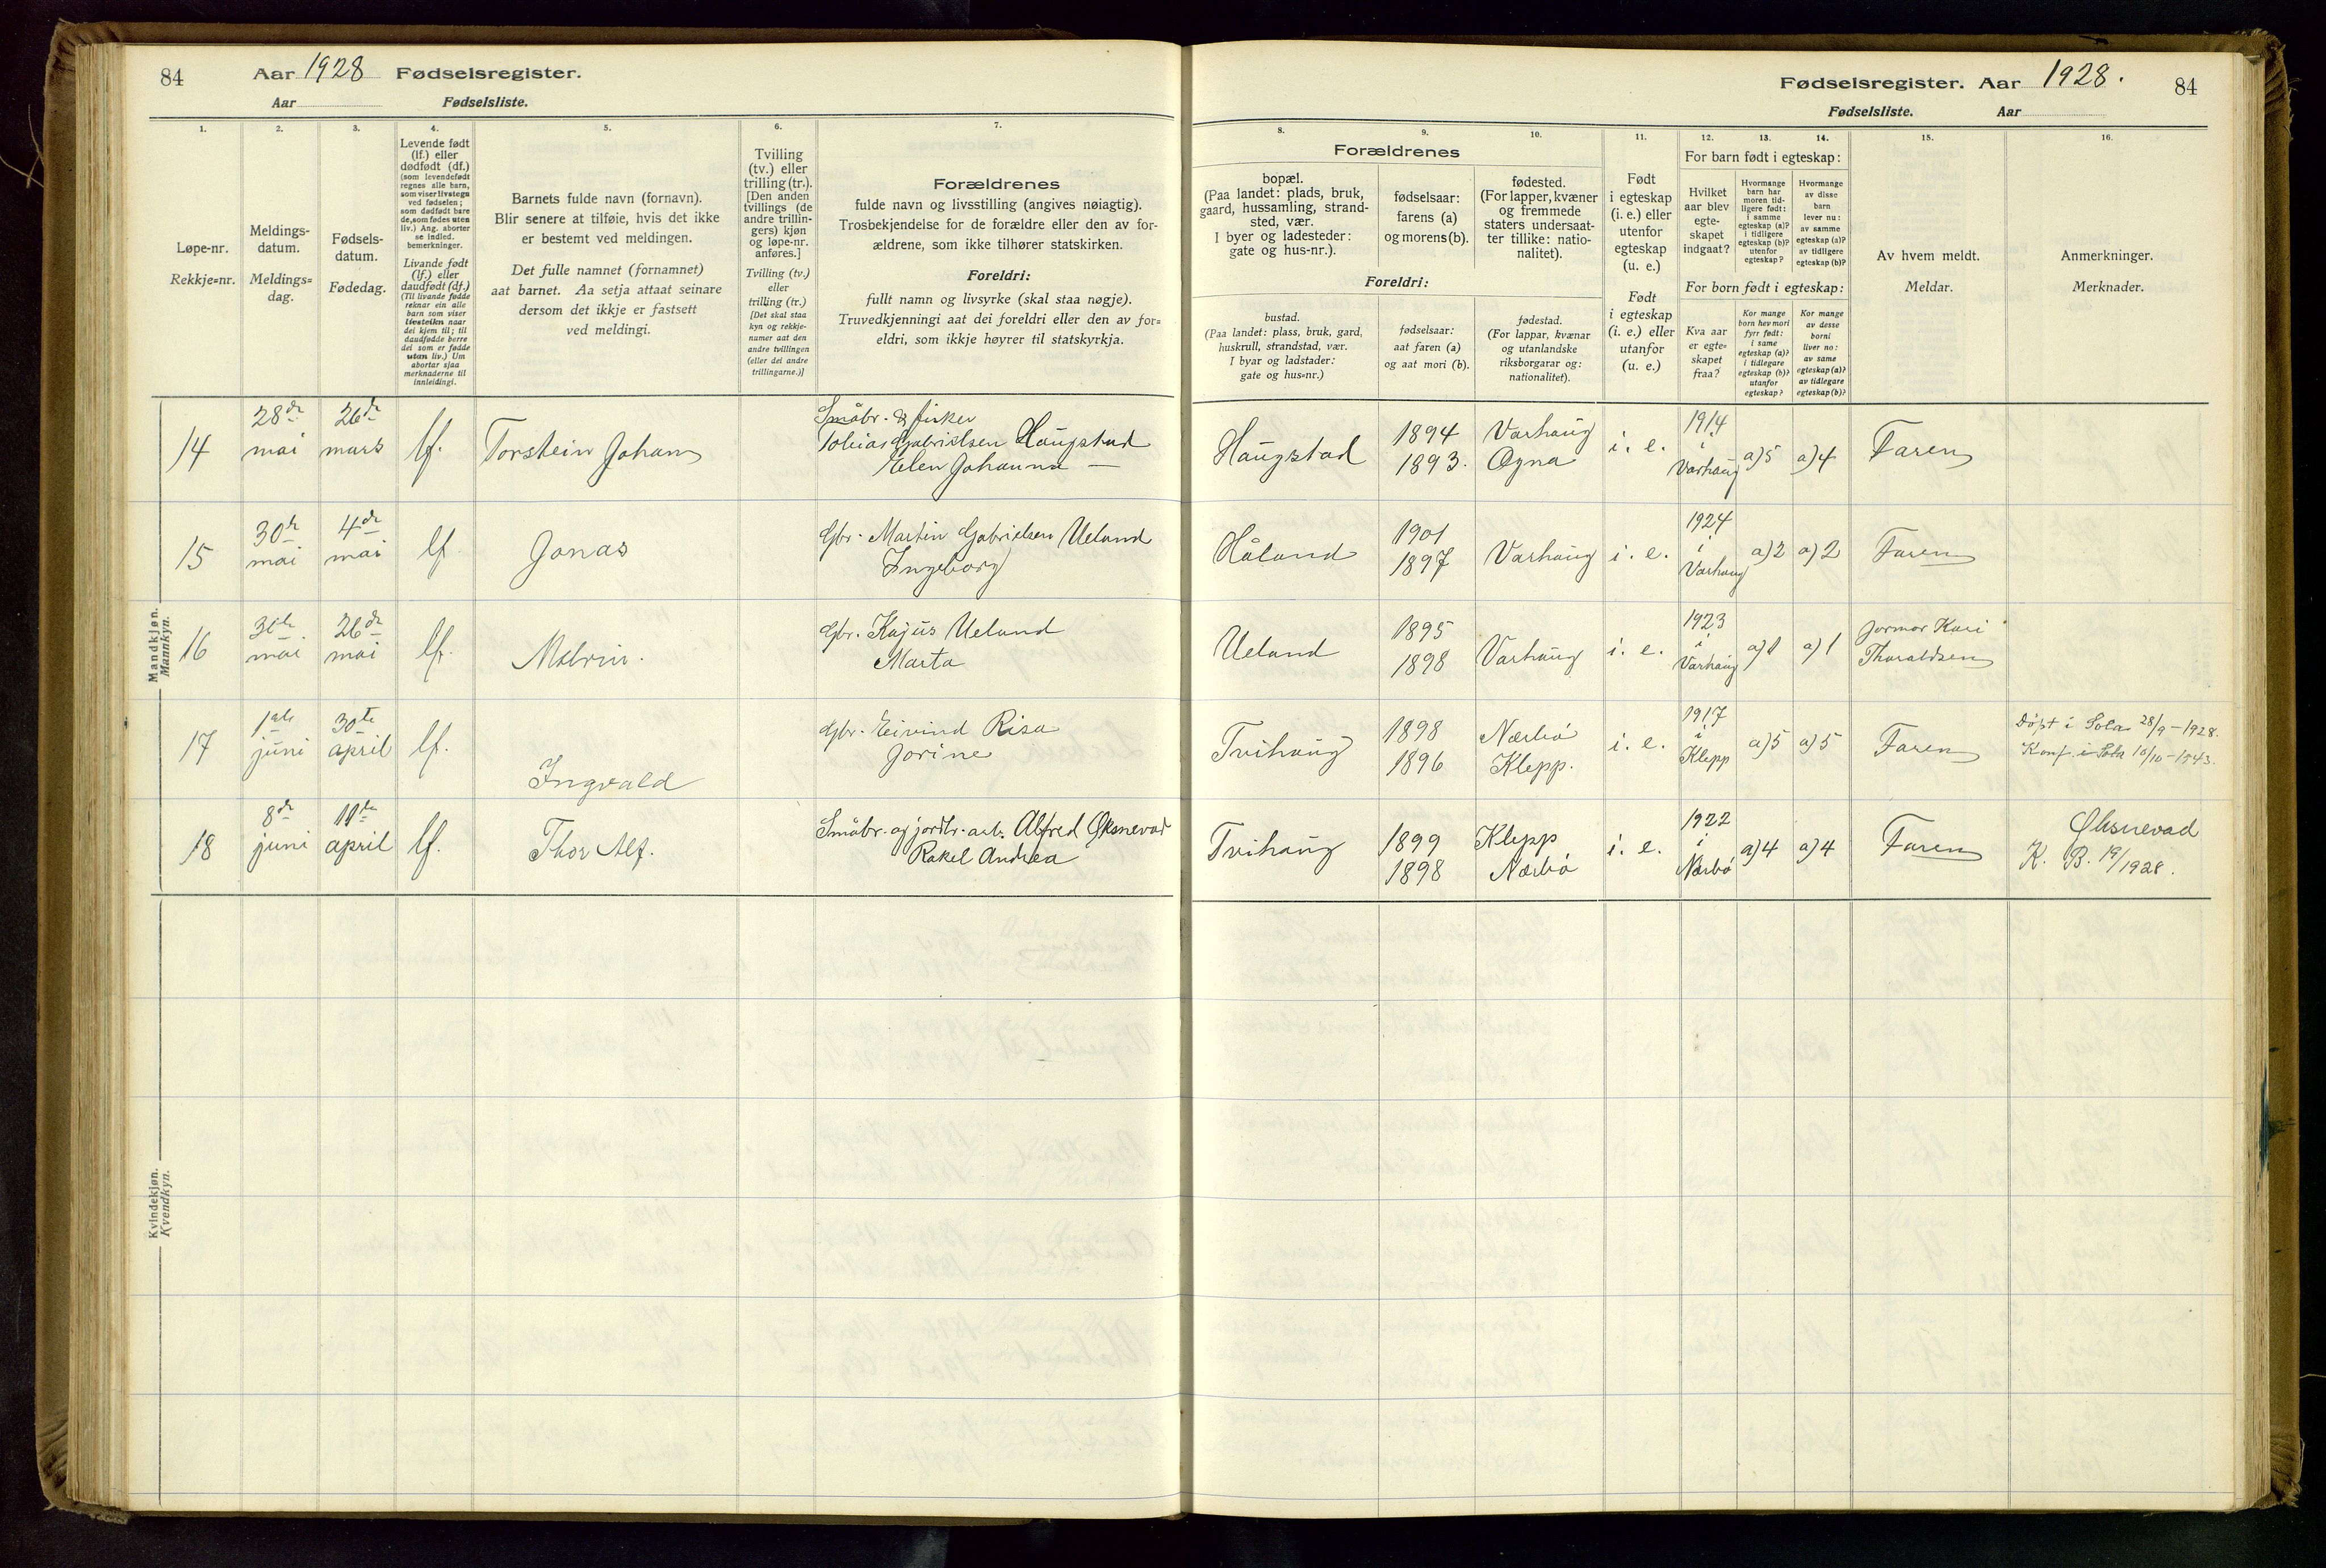 84 Aar 1928 Fødselsregister.
Aar Fødselsliste.
Fødselsregister. Aar 1928. 84
Fødselsliste. Aar
1.
Løpe-nr.
Rekkje=nr.
2.
Meldings-
datum.
Meldings=
dag.
3.
Fødsels-
datum.
Fødedag.
4.
Levende født
(lf.) eller
dødfødt (df.)
(som levendefødt
regnes alle barn,
som viser livstegn
ved fødselen;
som dødfødt bare
de, som fødes uten
liv.) Ang. aborter
se indled.
bemerkninger.
Livande født
(lf.) eller
daudfødt (df.)
(Til livande fødde
reknar ein alle
barn som viser
livsteikn naar
dei kjem til; til
daudfødde berre
dei som er fødde
utan liv.) Um
abortar sjaa
merknaderne til
innleidingi.
5.
Barnets fulde navn (fornavn).
Blir senere at tilføie, hvis det ikke
er bestemt ved meldingen.
Det fulle namnet (fornamnet)
aat barnet. Aa setja attaat seinare
dersom det ikkje er fastsett
ved meldingi.
6.
Tvilling
(tv.) eller
trilling (tr.).
[Den anden
tvillings (de
andre trillin-
gers) kjøn
og løpe-nr.
anføres.]
Tvilling (tv.)
eller
trilling (tr.)
[Det skal staa
kyn og rekkje-
numer aat den
andre tvillingen
(eller dei andre
trillingarne.)]
7.
Forældrenes
fulde navn og livsstilling (angives nøiagtig).
Trosbekjendelse for de forældre eller den av for-
ældrene, som ikke tilhører statskirken.
Foreldri:
fullt namn og livsyrke (skal staa nøgje).
Truvedkjenningi aat dei foreldri eller den av for=
eldri, som ikkje høyrer til statskyrkja.
Forældrenes
8.
bopæl.
(Paa landet: plads, bruk,
gaard, hussamling, strand-
sted, vær.
I byer og ladesteder:
gate og hus-nr.).
9.
fødselsaar:
farens (a)
og morens (b).
10.
fødested.
(For lapper, kvæner
og fremmede
staters undersaat-
ter tillike: natio-
nalitet).
Foreldri:
bustad.
(Paa landet: plass, bruk, gard,
huskrull, strandstad, vær.
I byar og ladstader:
gate og hus=nr.)
fødselsaar:
aat faren (a)
og aat mori (b).
fødestad.
(For lappar, kvænar
og utanlandske
riksborgarar og:
nationalitet).
11.
Født
i egteskap
(i. e.) eller
utenfor
egteskap
(u. e.)
Født
i egteskap
(i. e.) eller
utanfor
(u. e.)
For barn født i egteskap:
12.
Hvilket
aar blev
egte-
skapet
indgaat?
13.
Hvormange
barn har
moren tid-
ligere født:
i samme
egteskap (a)?
i tidligere
egteskap (b)?
utenfor
egteskap?
14.
Hvormange
av disse
barn
lever nu:
av samme
egteskap (a)?
av tidligere
egteskap (b)?
For born født i egteskap:
Kva aar
er egte=
skapet
fraa?
Kor mange
born hev mori
fyrr født:
i same
egteskap (a)?
i tidlegare
egteskap (b)?
utanfor
egteskap?
Kor mange
av desse
borni
liver no:
av same
egteskap (a)?
av tidlegare
egteskap (b)?
15.
Av hvem meldt.
Meldar.
16.
Anmerkninger.
Merknader.
Mandkjøn.
Mannkyn.
14 28de mai 26de mars lf. Torstein Johan
Småbr. & fisker
Tobias Gabrielsen Haugstad
Elen Johanna —
Haugstad 1894 1893. Varhaug Ogna i. e. 1914 i Varhaug a)5 a)4 Faren
15 30te mai 4de mai lf Jonas
Gbr. Martin Gabrielsen Ueland
Ingeborg
Håland 1901 1897 Varhaug i. e. 1924 i Varhaug a)2 a)2 Faren
16 mai 26de mai lf.
Gbr. Kajus Ueland
Marta
Ueland 1895 1898 Varhaug i. e. 1923 i Varhaug a)1 a)1 Jormor Kari Thoraldsen
17 1ste juni 30te april lf. Ingvald
Gbr. Eivind Risa
Jorine
Tvihaug 1898 1896 Nærbø Klepp. i. e. 1917 i Klepp a)5 a)5 Faren
Døpt i Sola 28/9-1928.
Konf. i Sola 10/10-1943.
18 8de juni 11te april lf. Thor Alf.
Småbr. og jordbr. arb. Alfred Øksnevad
Rakel Andrea
Tvihaug 1899 1898 Klepp Nærbø i. e. 1922 i Nærbø a)4 a)4 Faren
Øksnevad
K. B. 19/1928.
Kvindekjøn.
Kvendkyn.